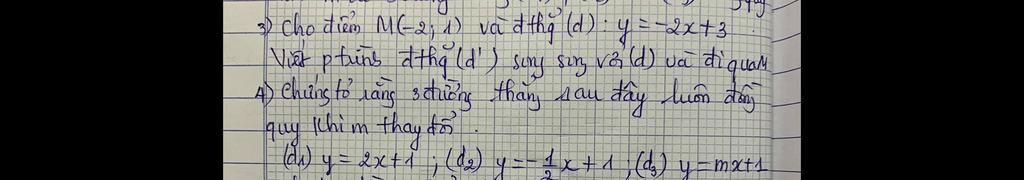 3) Cho điểm M(-2; 1) và đ thg (d): y = -2x + 3
Viết ptrình đ thg (d') song song với (d) và đi qua M
4) Chứng tỏ rằng 3 đường thẳng sau đây luôn đồng
quy khi m thay đổi.
(d1) y = 2x + 1 ; (d2) y = -1/2 x + 1 ; (d3) y = mx + 1